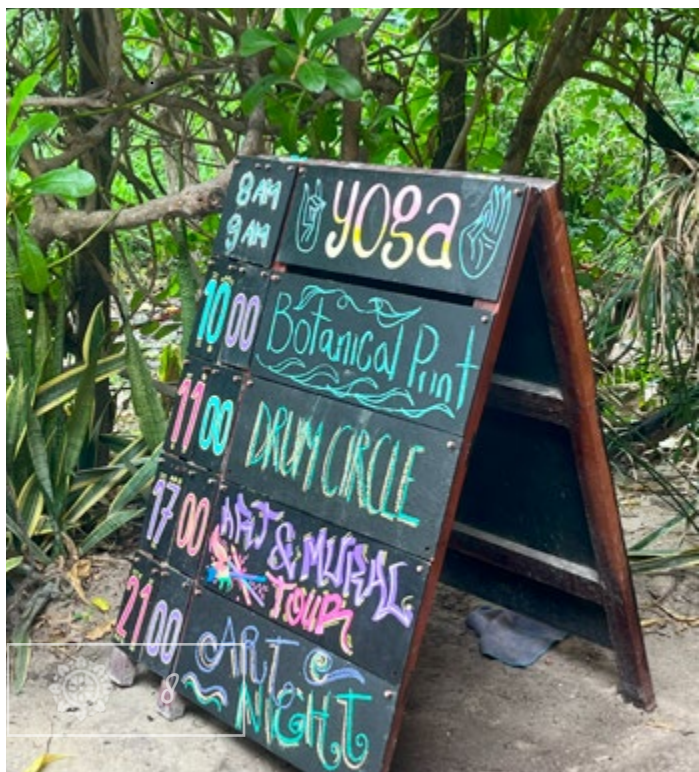 8 AM
9 AM
yoga
10 00
Botanical Print
11 00
DRUM CIRCLE
17 00
ART & MURAL
TOUR
21 00
ART
NIGHT
8